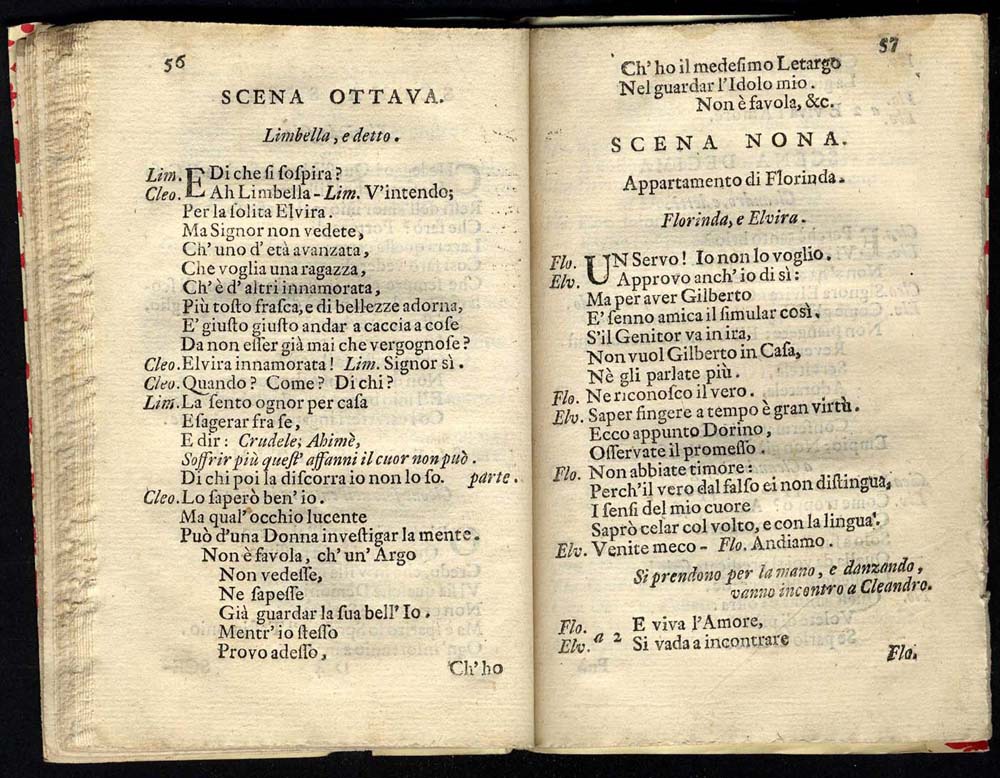 56
SCENA OTTAVA.
Limbella, e detto.
Lim. E Di che ſi ſoſpira?
Cleo. Ah Limbella - Lim. V'intendo;
Per la ſolita Elvira.
Ma Signor non vedete,
Ch' uno d' età avanzata,
Che voglia una ragazza,
Ch' è d' altri innamorata,
Più toſto fraſca, e di bellezze adorna,
E' giuſto giuſto andar a caccia a coſe
Da non eſſer già mai che vergognoſe?
Cleo. Elvira innamorata! Lim. Signor sì.
Cleo. Quando? Come? Di chi?
Lim. La ſento ognor per caſa
Eſagerar fra ſe,
E dir: Crudele; Ahimè,
Soffrir più queſt' affanni il cuor non può.
Di chi poi la diſcorra io non lo ſo. parte.
Cleo. Lo ſaperò ben' io.
Ma qual' occhio lucente
Può d'una Donna inveſtigar la mente.
Non è favola, ch' un' Argo
Non vedeſſe,
Ne ſapeſſe
Già guardar la ſua bell' Io.
Mentr' io ſteſſo
Provo adeſſo,
Ch' ho
57
Ch' ho il medeſimo Letargo
Nel guardar l'Idolo mio.
Non è favola, &c.
SCENA NONA.
Appartamento di Florinda.
Florinda, e Elvira.
Flo. UN Servo! Io non lo voglio.
Elv. Approvo anch' io di sì:
Ma per aver Gilberto
E' ſenno amica il ſimular così.
S'il Genitor va in ira,
Non vuol Gilberto in Caſa,
Nè gli parlate più.
Flo. Ne riconoſco il vero.
Elv. Saper fingere a tempo è gran virtù.
Ecco appunto Dorino,
Oſſervate il promeſſo.
Flo. Non abbiate timore:
Perch'il vero dal falſo ei non diſtingua,
I ſenſi del mio cuore
Saprò celar col volto, e con la lingua.
Elv. Venite meco - Flo. Andiamo.
Si prendono per la mano, e danzando,
vanno incontro a Cleandro.
Flo. E viva l'Amore,
Elv. a 2 Si vada a incontrare
Flo.